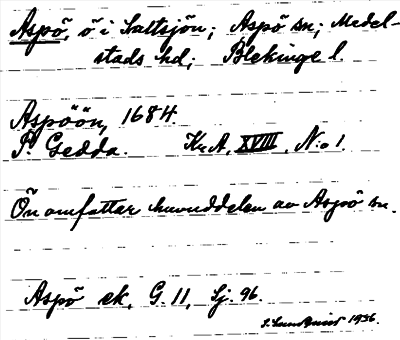 Aspö, ö i Saltsjön; Aspö sn; Medel-
stads hd; Blekinge l.
Aspöön, 1684.
P. Gedda. Kr A, XVIII, N:o 1.
Ön omfattar huvuddelen av Aspö sn.
Aspö ek, G. 11, Sj. 96.
S. Lundquist 1936.